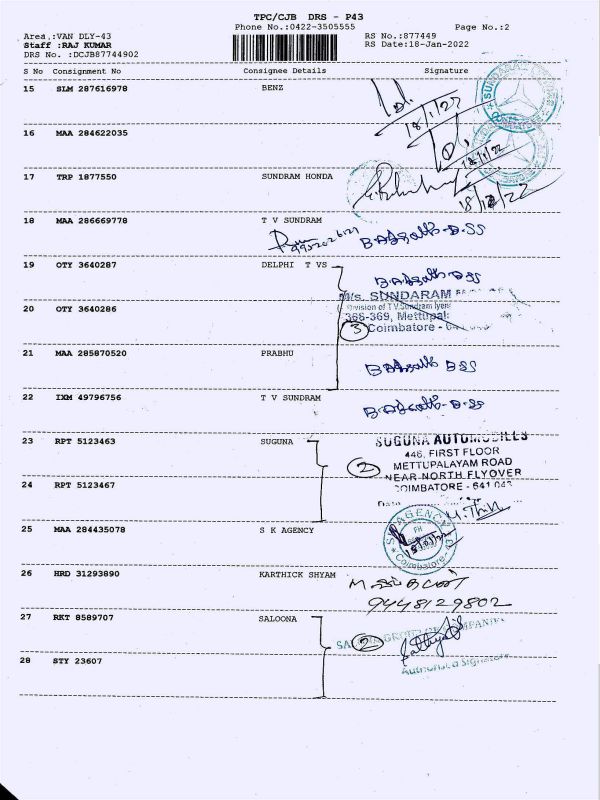 TPC/CJB DRS - P43
Phone No.:0422-3505555 Page No.:2
Area .:VAN DLY-43 RS No.:877449
Staff :RAJ KUMAR RS Date:18-Jan-2022
DRS No. :DCJB87744902
S No Consignment No Consignee Details Signature
15 SLM 287616978 BENZ
18/1/22
16 MAA 284622035
18/1/22
17 TRP 1877550 SUNDRAM HONDA
18 MAA 286669778 T V SUNDRAM
19 OTY 3640287 DELPHI T VS
M/s. SUNDARAM
Division of T.V.Sundram Iyengar
20 OTY 3640286 368-369, Mettupal
3 Coimbatore -
21 MAA 285870520 PRABHU
22 IXM 49796756 T V SUNDRAM
23 RPT 5123463 SUGUNA SUGUNA AUTOMOBILES
446, FIRST FLOOR
2 METTUPALAYAM ROAD
NEAR NORTH FLYOVER
24 RPT 5123467 COIMBATORE - 641 043
25 MAA 284435078 S K AGENCY
Coimbatore
26 HRD 31293890 KARTHICK SHYAM
9448129802
27 RKT 8589707 SALOONA
2 GROUP OF COMPANIES
28 STY 23607